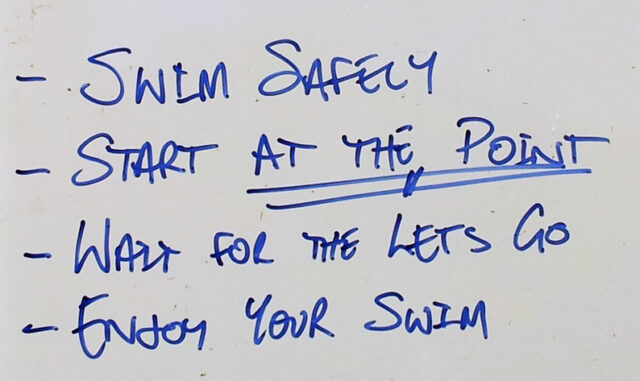 - SWIM SAFELY
- START AT THE POINT
- WAIT FOR THE LETS GO
- ENJOY YOUR SWIM